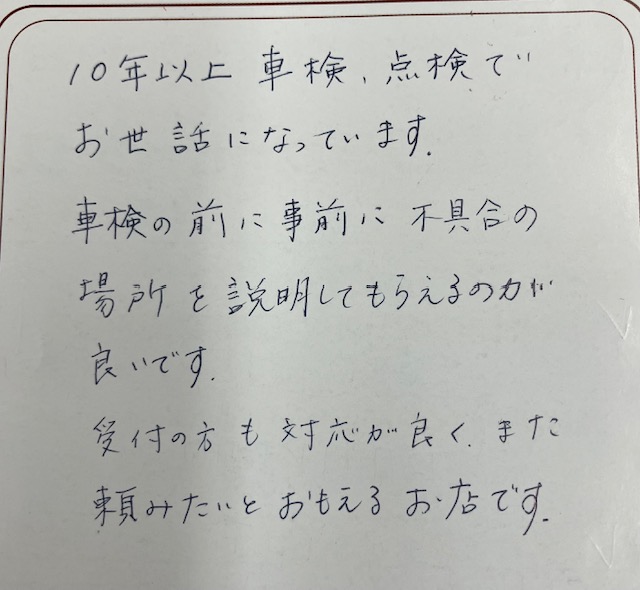 10年以上 車検、点検で
お世話になっています。
車検の前に事前に不具合の
場所を説明してもらえるのがが
良いです。
受付の方も対応が良く、また
頼みたいとおもえるお店です。